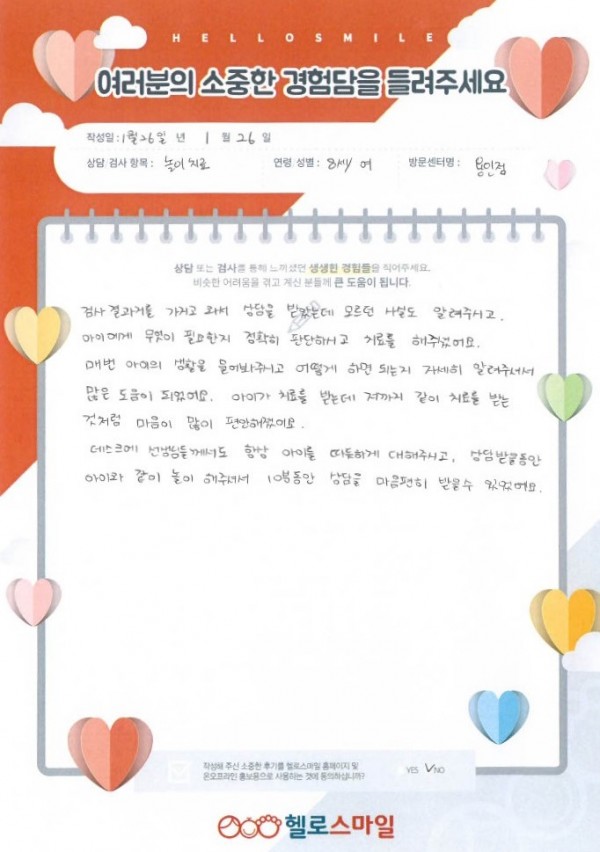 HELLOSMILE
여러분의 소중한 경험담을 들려주세요
작성일: 1월26일 년 1 월 26 일
상담 검사 항목: 놀이치료 연령 성별: 8세/ 여 방문센터명: 용인점
상담 또는 검사를 통해 느끼셨던 생생한 경험들을 적어주세요.
비슷한 어려움을 겪고 계신 분들께 큰 도움이 됩니다.
검사 결과지를 가지고 와서 상담을 받았는데 모르던 사실도 알려주시고.
아이에게 무엇이 필요한지 정확히 판단하시고 치료를 해주셨어요.
매번 아이의 생활을 물어봐주시고 어떻게 하면 되는지 자세히 알려주셔서
많은 도움이 되었어요. 아이가 치료를 받는데 저까지 같이 치료를 받는
것처럼 마음이 많이 편안해졌어요.
데스크에 선생님들께서도 항상 아이를 따듯하게 대해주시고, 상담받을동안
아이와 같이 놀이 해주셔서 10분동안 상담을 마음편히 받을수 있었어요.
작성해 주신 소중한 후기를 헬로스마일 홈페이지 및
온오프라인 홍보용으로 사용하는 것에 동의하십니까?
YES V NO
헬로스마일